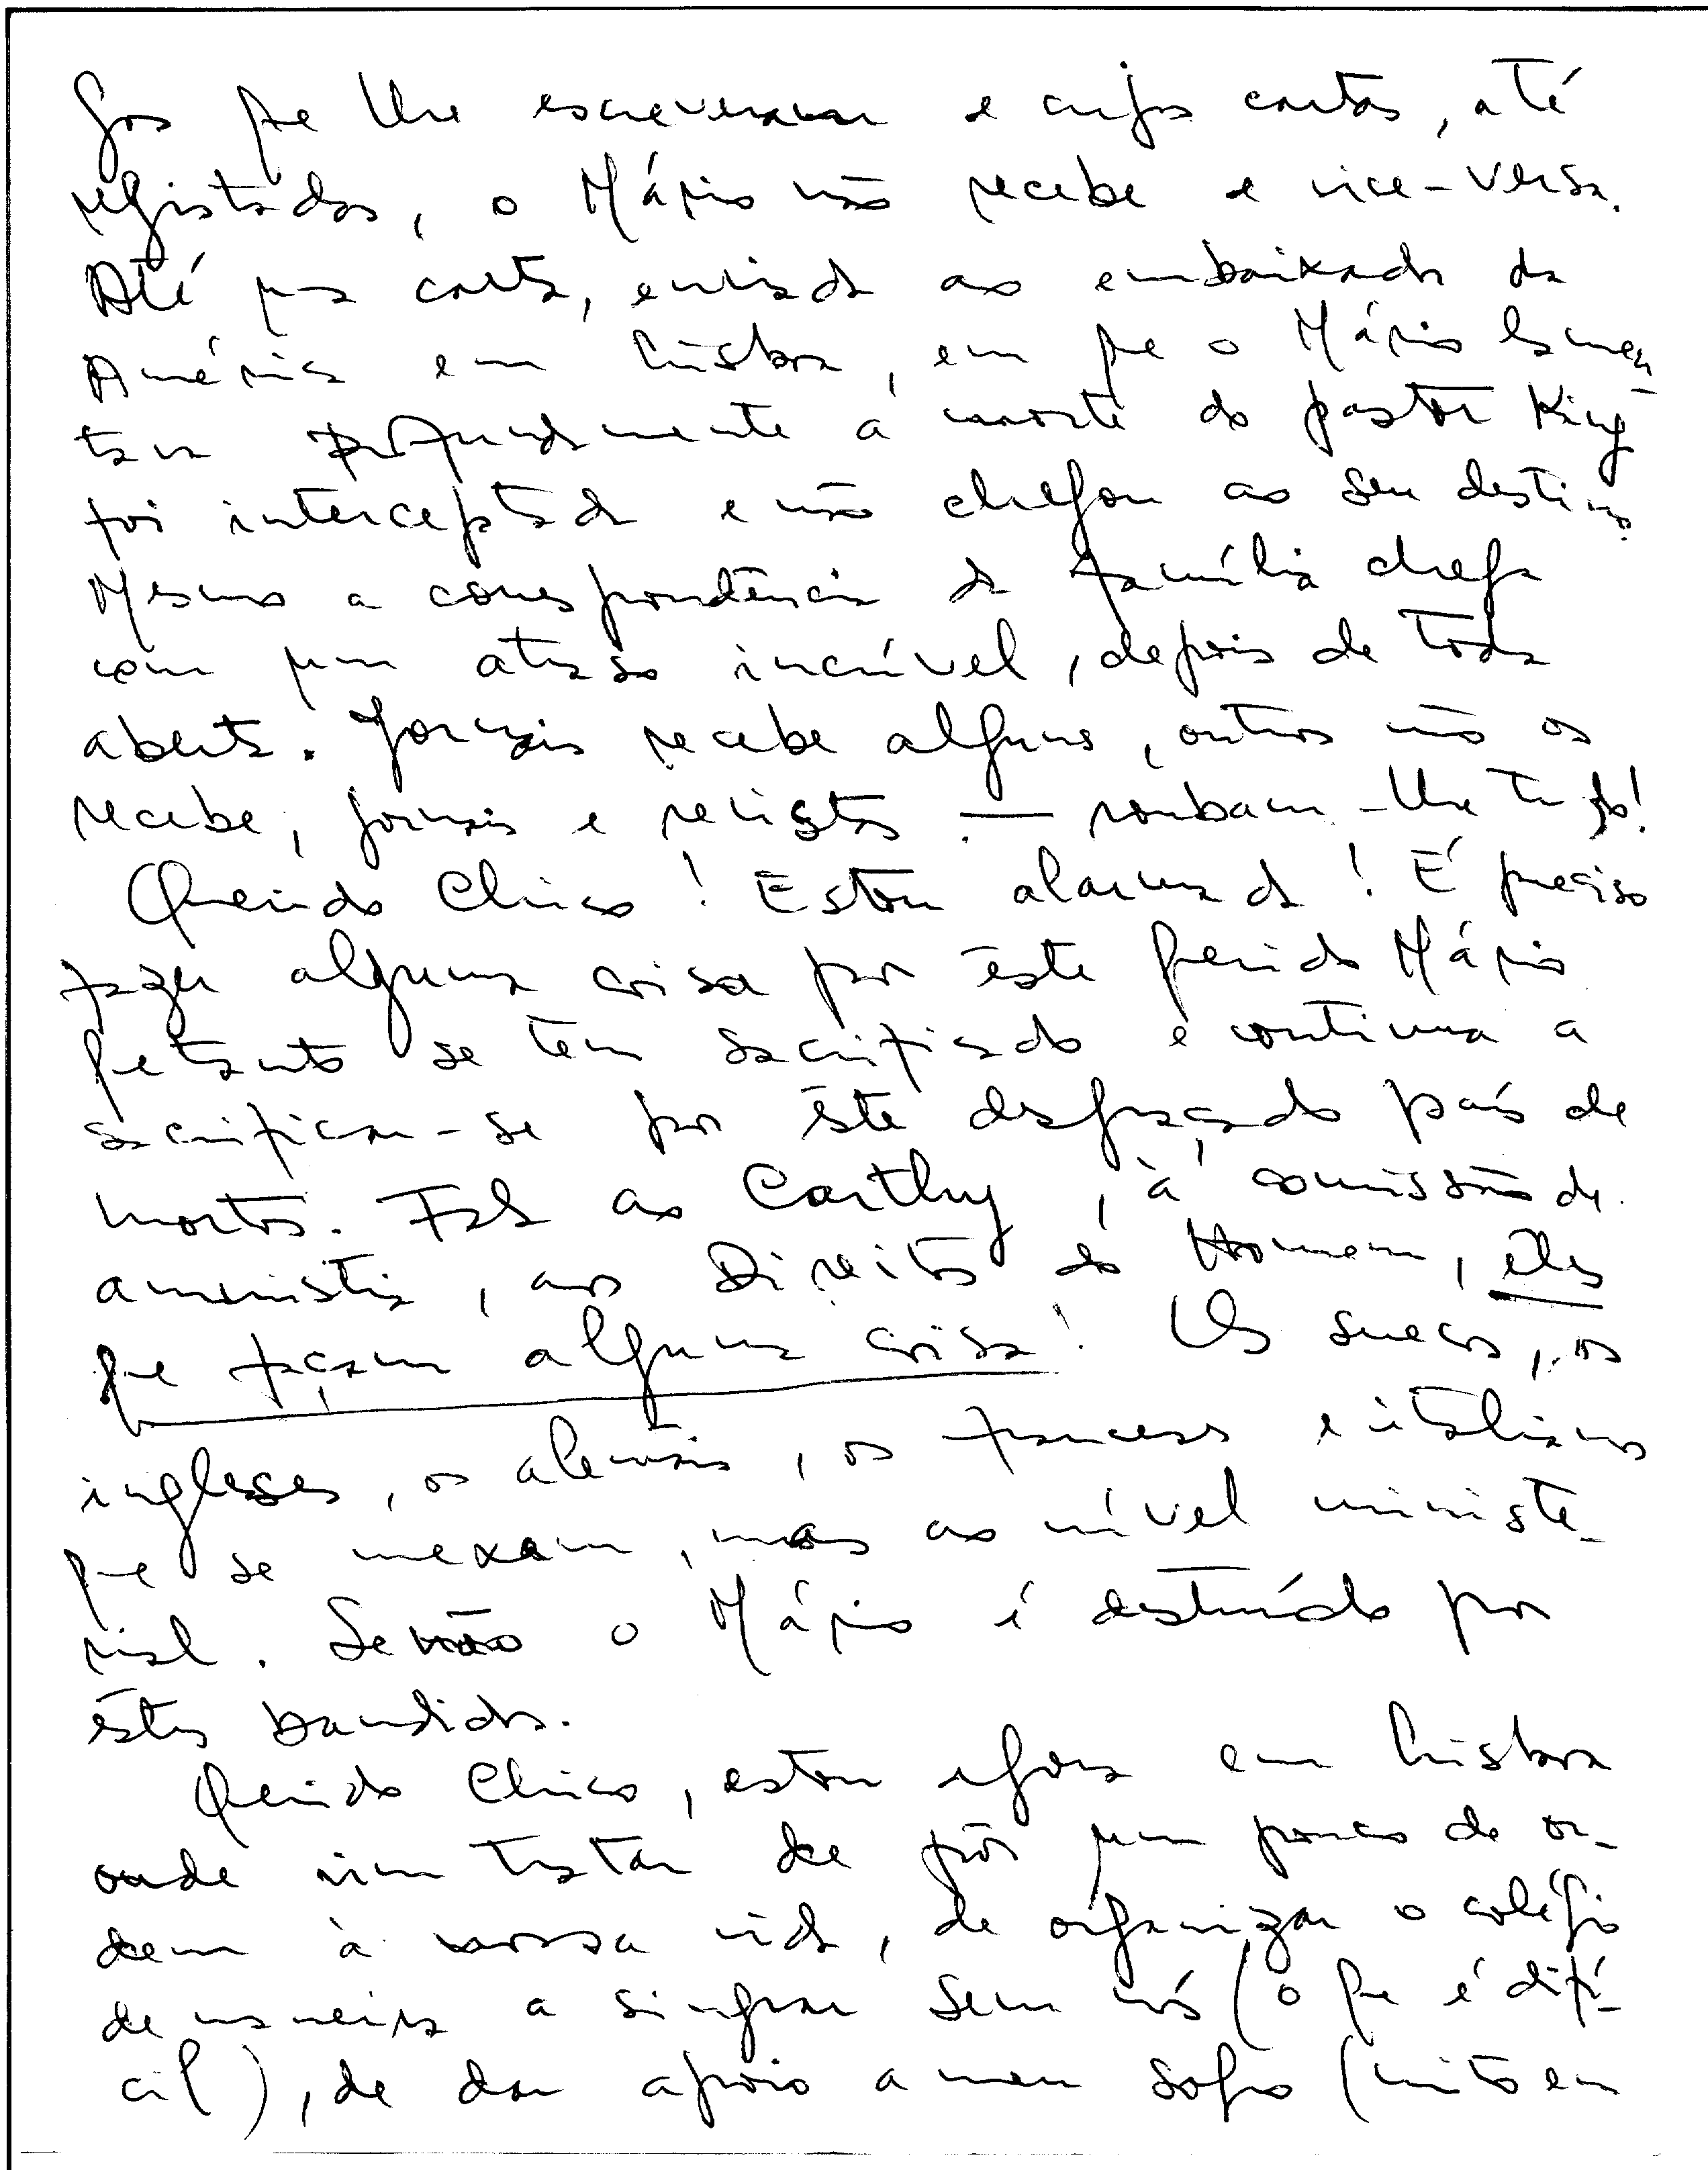 gos que lhe escreveram e cujas cartas, até
registadas, o Mário não recebe e vice-versa.
Até uma carta, enviada ao embaixador da
América em Lisboa, em que o Mário lamen-
tava profundamente a morte do pastor King
foi interceptada e não chegou ao seu destino.
Mesmo a correspondência da família chega
com um atraso incrível, depois de toda
aberta. Jornais recebe alguns, outros não os
recebe, jornais e revistas — roubam-lhe tudo!
Querido Chico! Estou alarmada! É preciso
fazer alguma coisa por êste querido Mário
que tanto se tem sacrificado e continua a
sacrificar-se por êste desgraçado país de
mortos. Fala ao Carthy, à comissão de
amenistia, aos Direitos do Homem, eles
que façam alguma coisa! Os suecos, os
ingleses, os alemãis, os franceses e italianos
que se mexam, mas ao nível ministe-
rial. Senão o Mário é destruído por
êstes bandidos.
Querido Chico, estou agora em Lisboa
onde vim tratar de pôr um pouco de or-
dem à nossa vida, de organizar o colégio
de maneira a singrar sem nós (o que é difí-
cil), de dar apoio a meu sogro (muito em